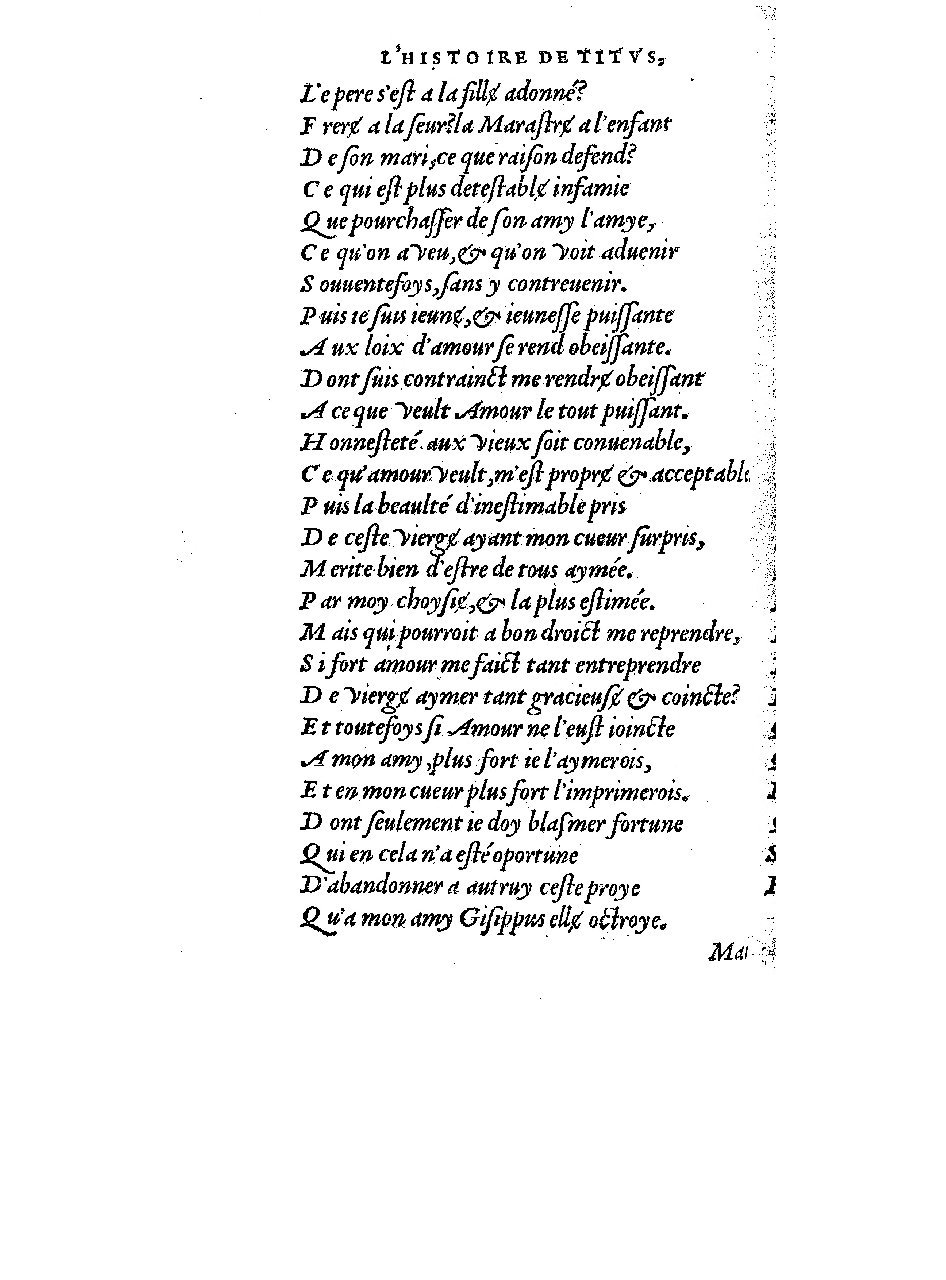 L'HISTOIRE DE TITVS,
L'e pere s'eſt a la fillɇ adonné?
Frerɇ a la ſeur? la Maraſtrɇ a l'enfant
De ſon mari, ce que raiſon defend?
Ce qui eſt plus deteſtablɇ infamie
Que pourchaſſer de ſon amy l'amye,
Ce qu'on a veu, & qu'on voit aduenir
Souuenteſoys, ſans y contreuenir.
Puis ie ſuis ieunɇ, & ieuneſſe puiſſante
Aux loix d'amour ſe rend obeiſſante.
Dont ſuis contrainct me rendrɇ obeiſſant
A ce que veult Amour le tout puiſſant.
Honneſteté aux vieux ſoit conuenable,
Ce qu'amour veult, m'eſt proprɇ & acceptable
Puis la beaulté d'ineſtimable pris
De ceſte viergɇ ayant mon cueur ſurpris,
Merite bien d'eſtre de tous aymée.
Par moy choyſiɇ, & la plus eſtimée.
Mais qui pourroit a bon droict me reprendre,
Si fort amour me faict tant entreprendre
De viergɇ aymer tant gracieuſɇ & coincte?
Et toutefoys ſi Amour ne l'euſt ioincte
A mon amy, plus fort ie l'aymerois,
Et en mon cueur plus fort l'imprimerois.
Dont ſeulement ie doy blaſmer fortune
Qui en cela n'a eſté oportune
D'abandonner a autruy ceſte proye
Qu'a mon amy Giſippus ellɇ octroye.
Mai